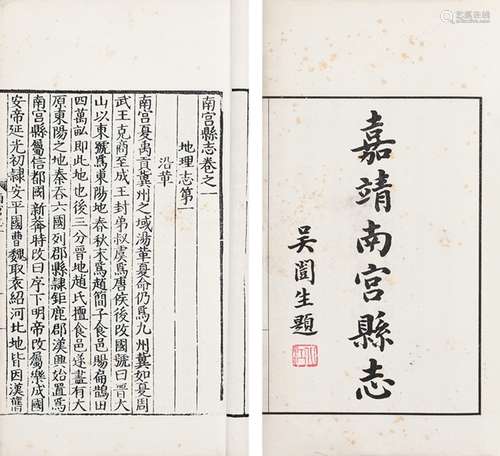 嘉靖南宫縣志
吳闓生題
南宫縣志卷之一
地理志第一
沿革
南宫夏禹貢冀州之域湯革夏命仍爲九州冀如夏周
武王克商至成王封弟叔虞爲唐侯後改國號曰晉大
山以東號爲東陽地春秋末爲趙簡子食邑賜扁鵲田
四萬畝即此地也後三分晉地趙氏擅食邑遂盡有大
原東陽之地秦吞六國列郡縣隸鉅鹿郡漢興始置爲
南宫縣屬信都國新莽特改曰序下明帝改屬樂成國
安帝延光初隸安平國曹魏取袁紹河北地皆因漢舊